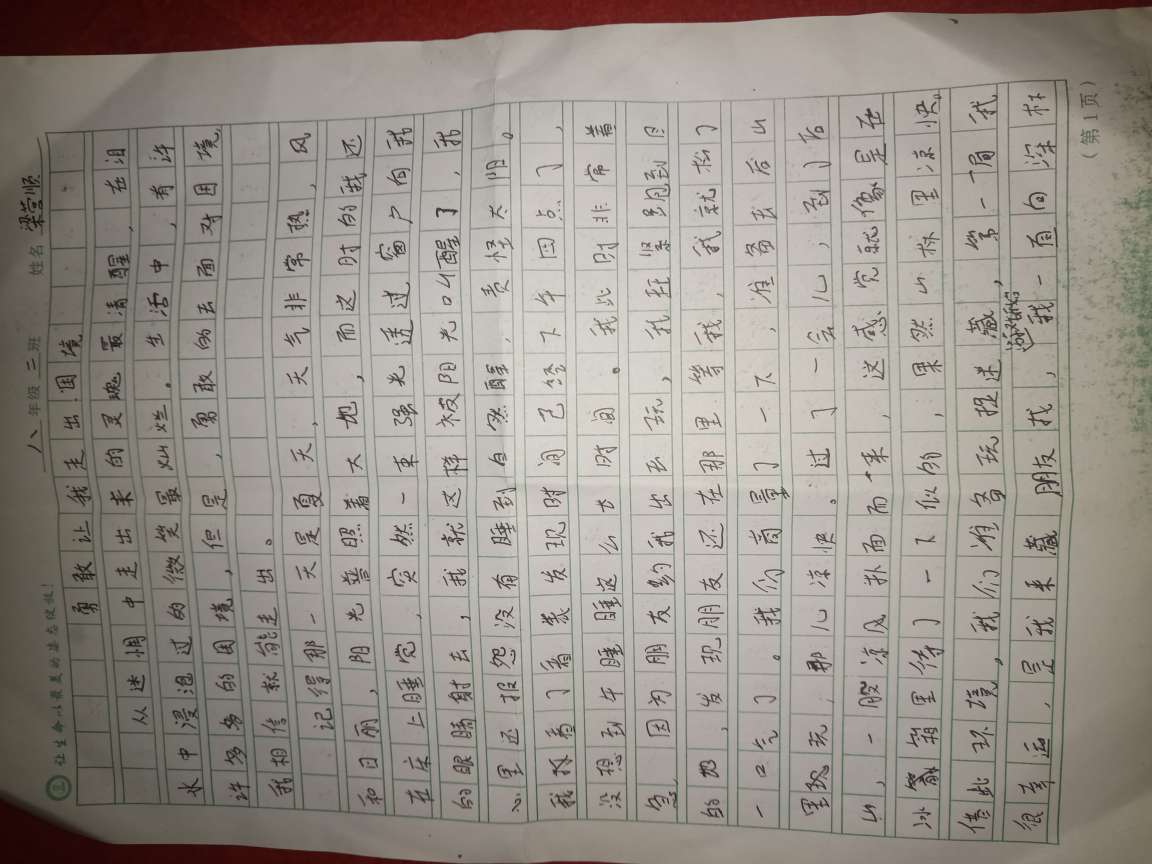 让生命以最美的姿态绽放!
八 年级 三 班 姓名 梁营顺
勇敢让我走出困境
从迷惘中走出来的灵魂最清醒,在泪
水中浸泡过的微笑最灿烂。生活中,有许
许多多的困境,但是,勇敢的去面对困境,
我相信就能走出。
记得那一天是夏天,天气非常热,风
和日丽,阳光普照着大地,而这时的我还
在床上睡觉,突然一束强光透过窗户向我
的眼睛射去,我就这样被阳光叫醒了,我
心里还报怨没有睡到自然醒,责怪太阳。
我看了看表发现时间已经下午四点了,
没想到午睡睡这么长时间。我此时非常着
急,因为朋友约我出去玩,我赶紧跑到目
的地,发现朋友还在那里等我,我就松了
一口气了。我们商量了一下,准备去后山
里玩,那儿凉快。过了一会儿,到了后
山,一股凉风扑面而来,这感觉就像是在
冰箱里待了一下似的,果然山林里凉快。
借此环境,我们准备玩捉迷藏,第一局我
很幸运,是我来藏朋友找,我一直向深林
(第1页)